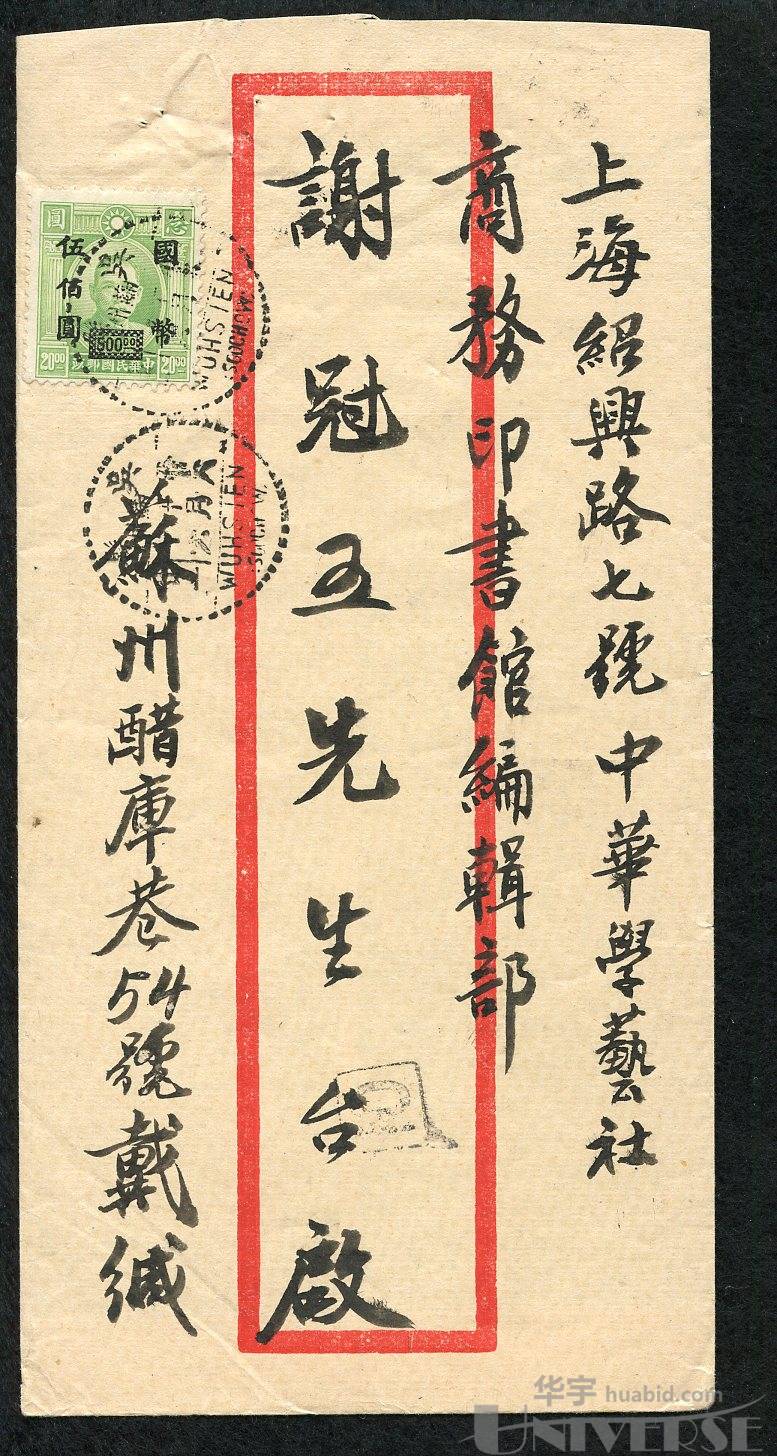 上海紹興路七號中華學藝社
商務印書館編輯部
謝冠五先生台啟
蘇州醋庫巷54號戴緘
國幣
伍佰圓
500.00
20.00
中華民國郵政
20.00
WUHSIEN
WUHSIEN
华宇 huabid.com
UNIVERSE